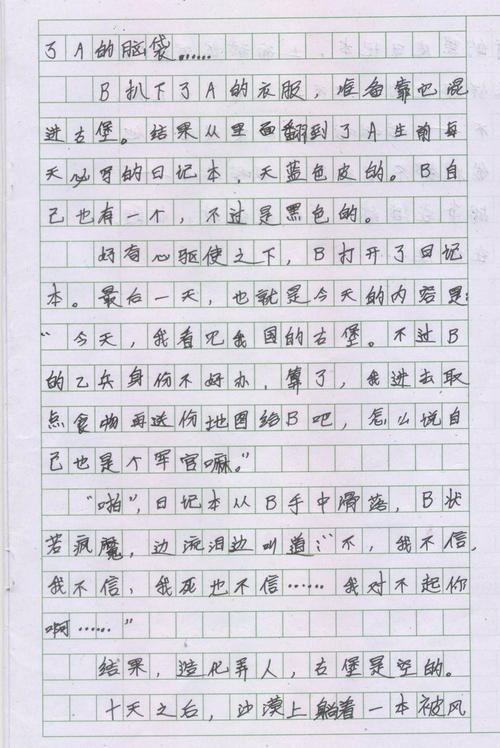 了A的脑袋……
B扒下了A的衣服，准备靠吧混
进古堡。结果从里面翻到了A生前每
天必写的日记本，天蓝色皮的。B自
己也有一个，不过是黑色的。
好奇心驱使之下，B打开了日记
本。最后一天，也就是今天的内容是：
“今天，我看吧我国的古堡。不过B
的乙兵身份不好办，算了，我进去取
点食物再送份地图给B吧，怎么说自
己也是个军官嘛。”
“啪”，日记本从B手中滑落，B状
若疯魔，边流泪边叫道：“不，我不信，
我不信，我死也不信……我对不起你
啊……”
结果，造化弄人，古堡是空的。
十天之后，沙漠上躺着一本被风